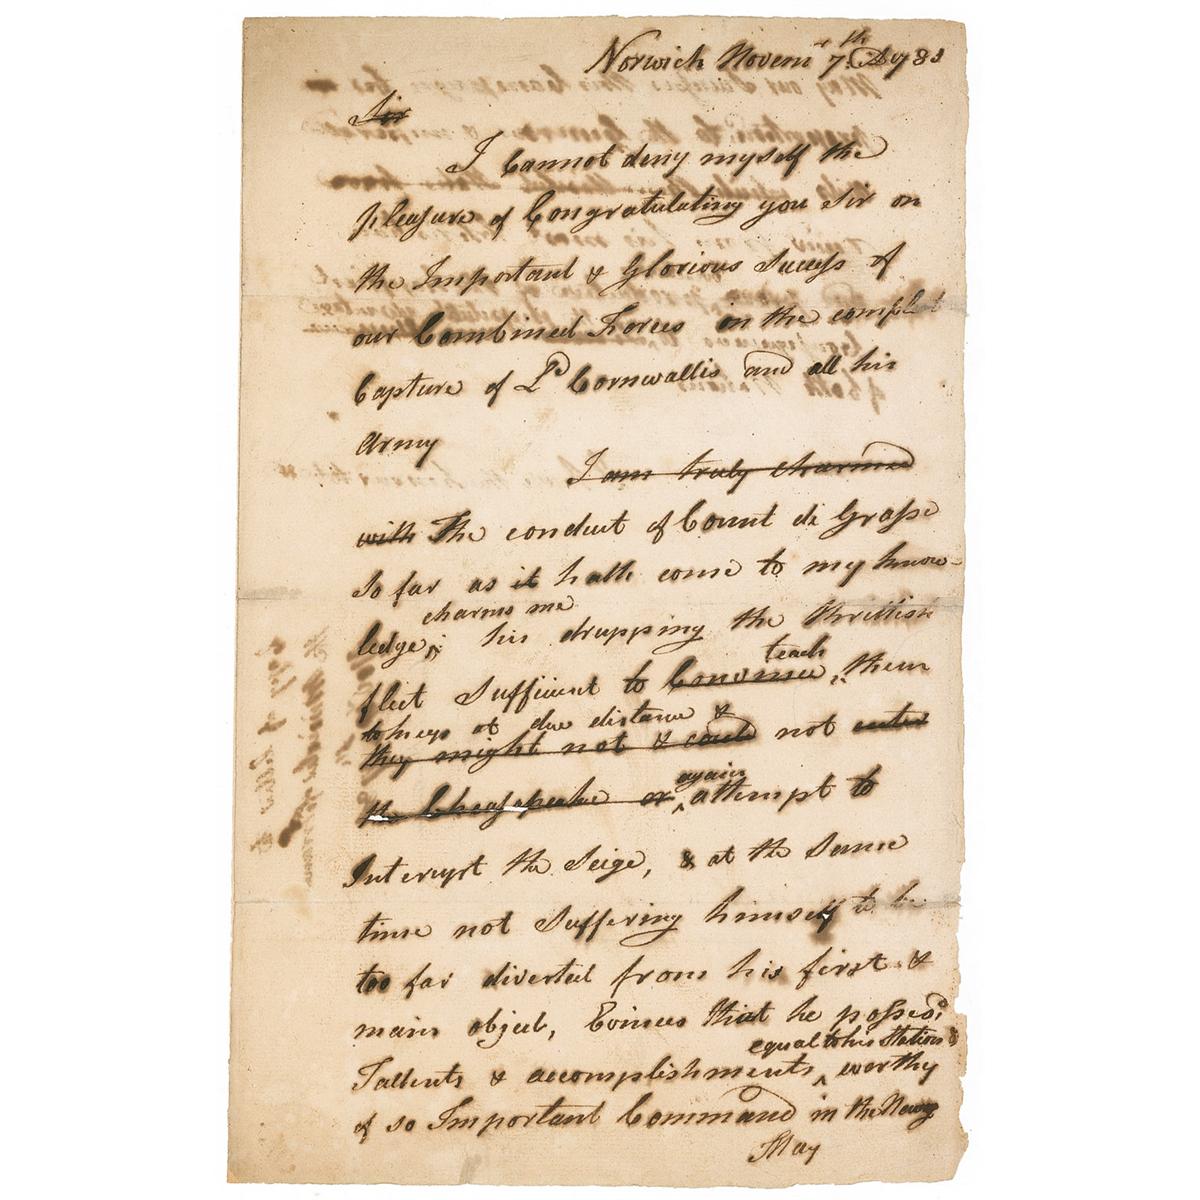 Norwich Novem 7.th AD 1781
Sir
I Cannot deny myself the
pleasure of Congratulating you Sir on
the Important & Glorious Success of
our Combined Forces in the complet
Capture of Ld Cornwallis and all his
Army
I am truly charmed
with The conduct of Count de Grasse
so far as it hath come to my know-
charms me
ledge ; his drupping the Brittish
teach
fleet Sufficient to Convince them
to keep at due distance &
they might not & could not enter
again
the Cheasapeake or attempt to
Interupt the Seige, & at the Same
time not Suffering himself to be
too far diverted from his first &
main object, Evinces that he possess'd
equal to his Station &
Tallents & accomplishments worthy
of so Important Command in the Navy
May